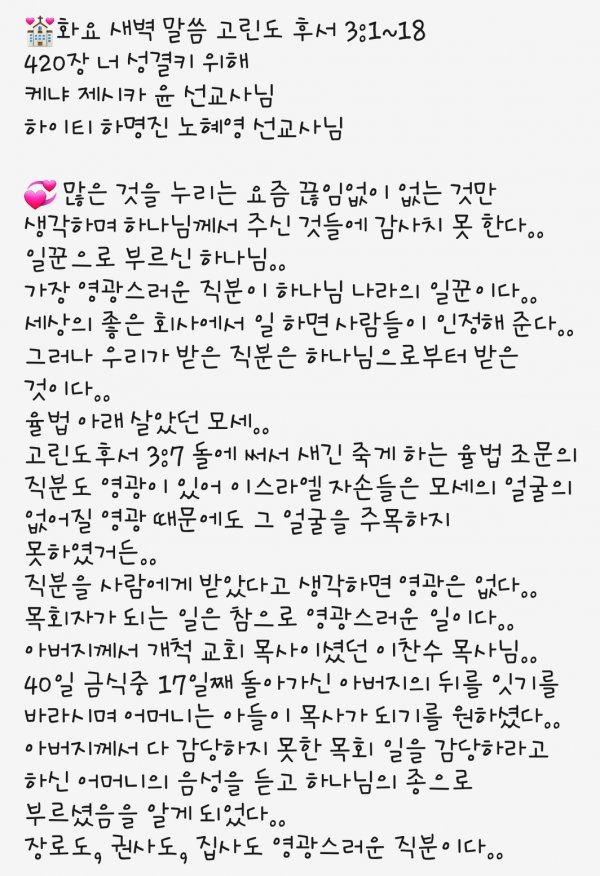 💒화요 새벽 말씀 고린도 후서 3:1~18
420장 너 성결키 위해
케냐 제시카 윤 선교사님
하이티 하명진 노혜영 선교사님
💞많은 것을 누리는 요즘 끊임없이 없는 것만
생각하며 하나님께서 주신 것들에 감사치 못 한다..
일꾼으로 부르신 하나님..
가장 영광스러운 직분이 하나님 나라의 일꾼이다..
세상의 좋은 회사에서 일 하면 사람들이 인정해 준다..
그러나 우리가 받은 직분은 하나님으로부터 받은
것이다..
율법 아래 살았던 모세..
고린도후서 3:7 돌에 써서 새긴 죽게 하는 율법 조문의
직분도 영광이 있어 이스라엘 자손들은 모세의 얼굴의
없어질 영광 때문에도 그 얼굴을 주목하지
못하였거든..
직분을 사람에게 받았다고 생각하면 영광은 없다..
목회자가 되는 일은 참으로 영광스러운 일이다..
아버지께서 개척 교회 목사이셨던 이찬수 목사님..
40일 금식중 17일째 돌아가신 아버지의 뒤를 잇기를
바라시며 어머니는 아들이 목사가 되기를 원하셨다..
아버지께서 다 감당하지 못한 목회 일을 감당하라고
하신 어머니의 음성을 듣고 하나님의 종으로
부르셨음을 알게 되었다..
장로도, 권사도, 집사도 영광스러운 직분이다..